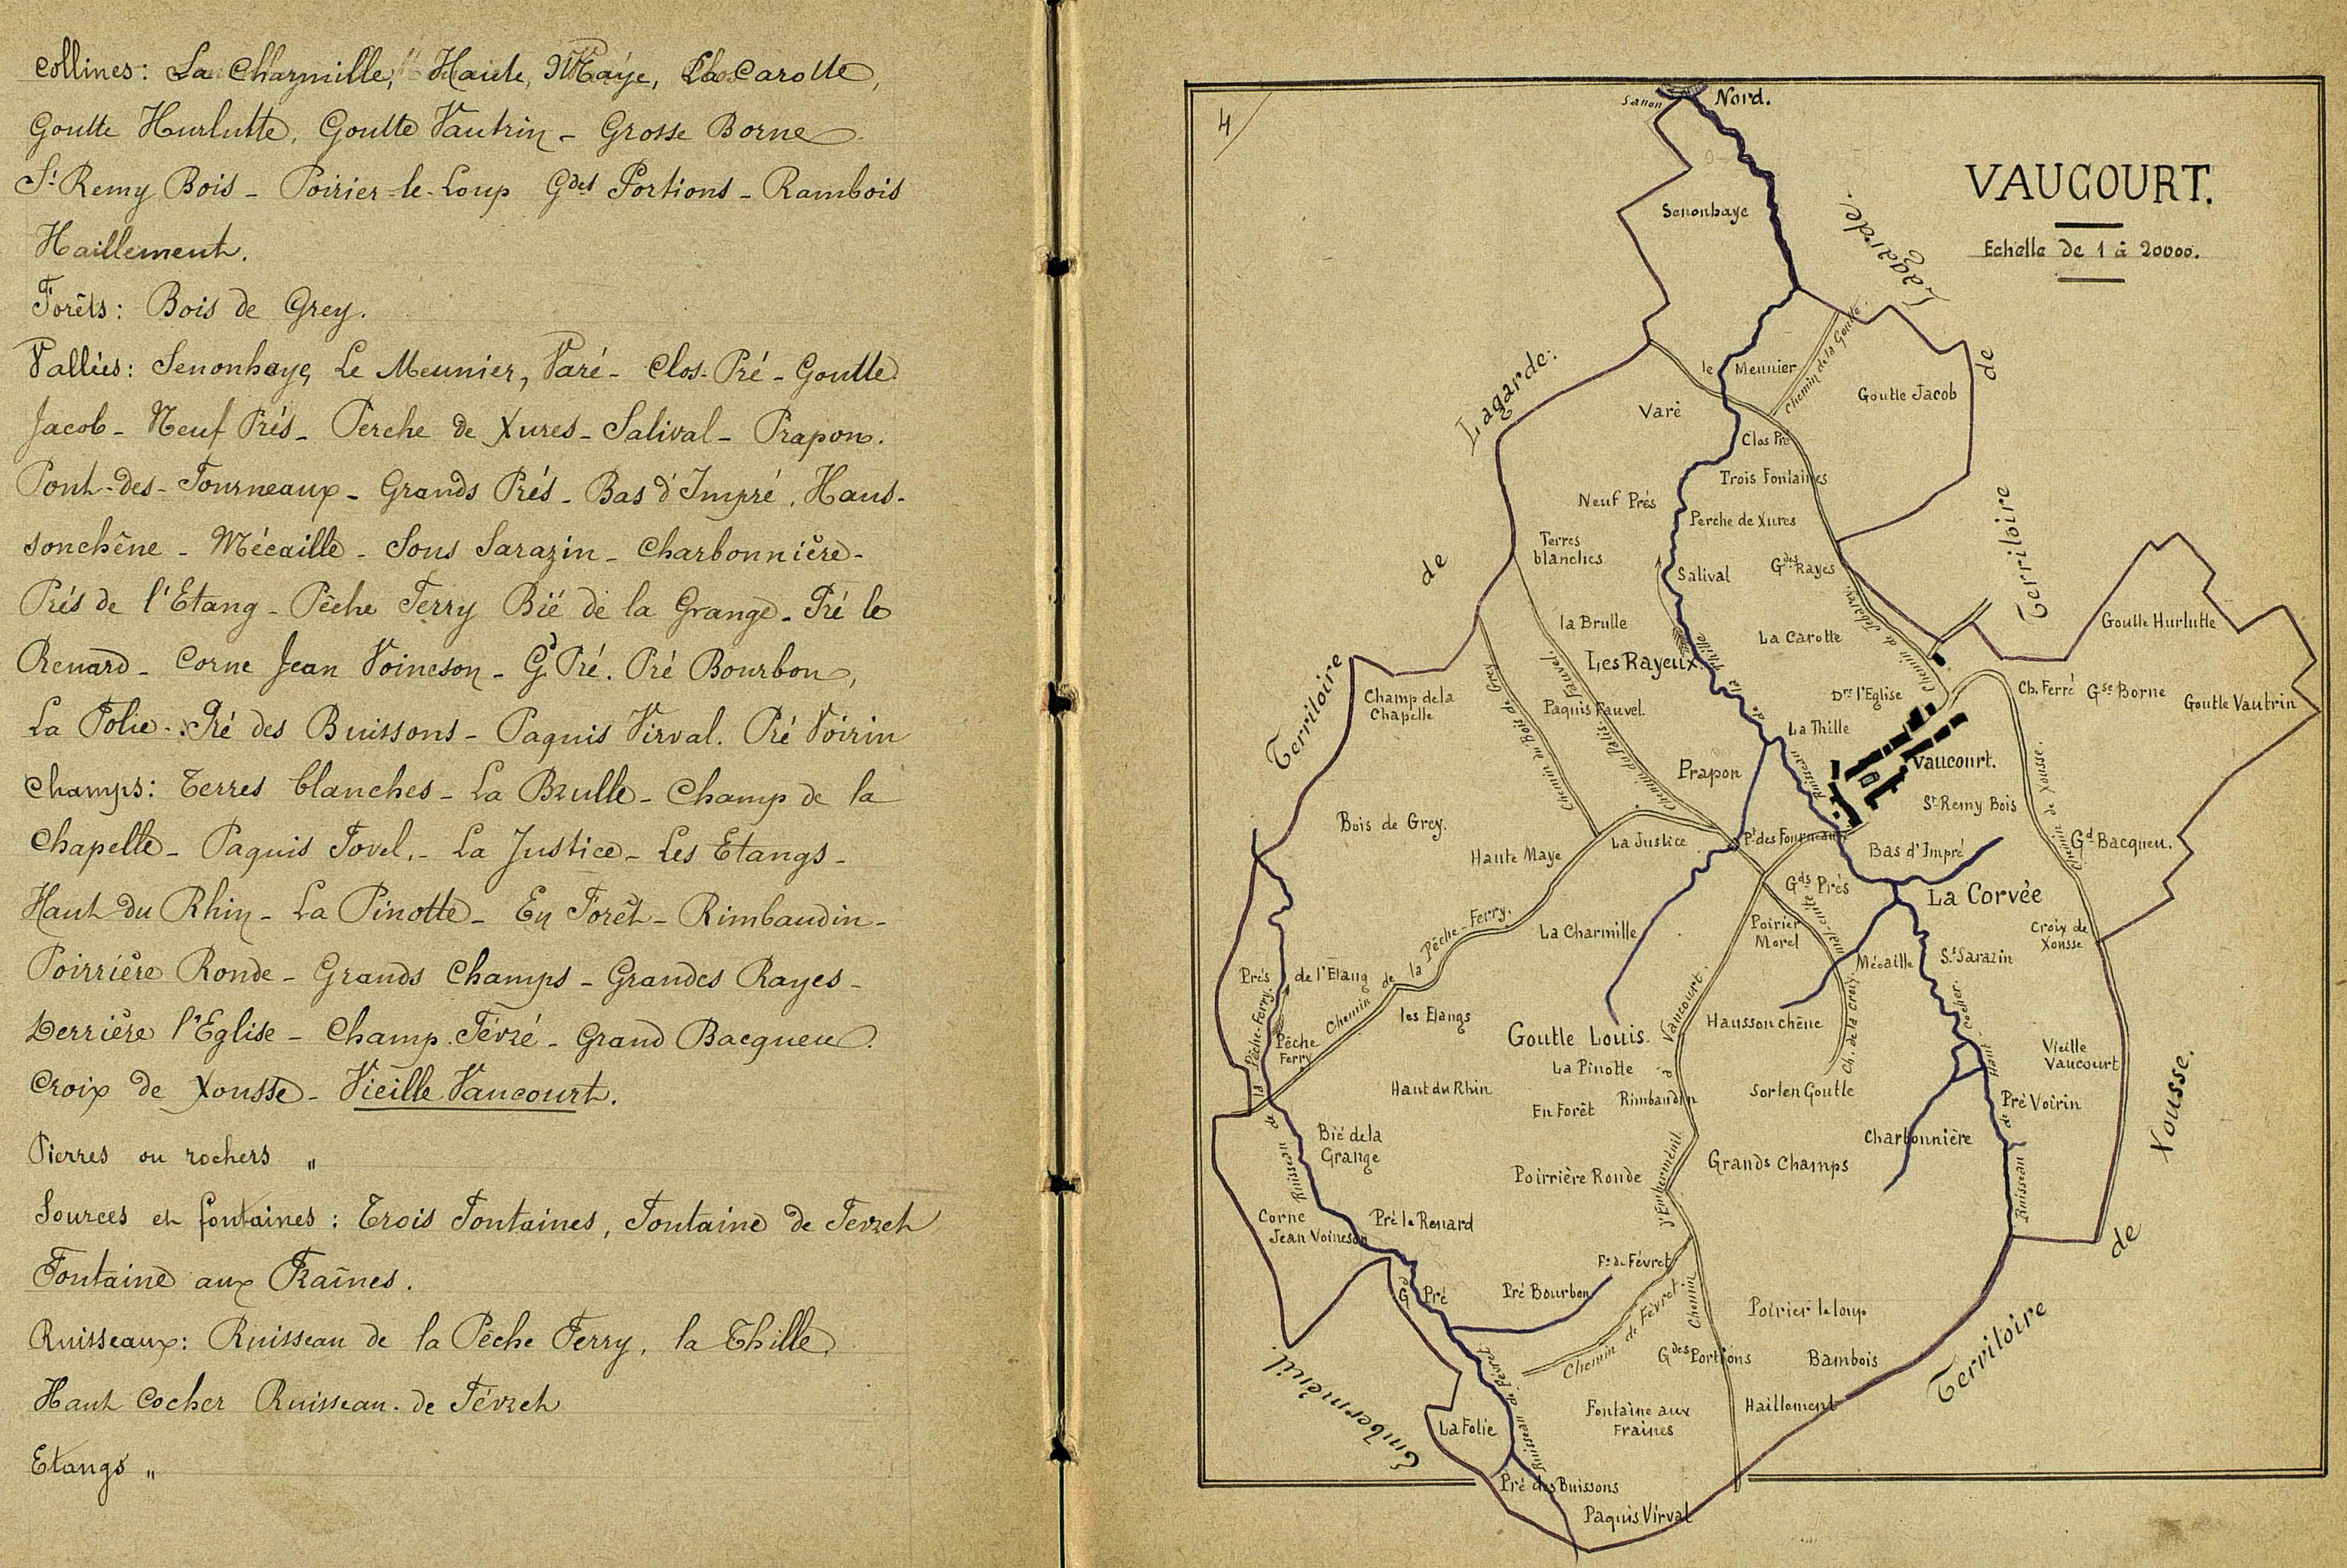 Collines: La Charmille, Haute Maye, La Carotte,
Goutte Hurlutte, Goutte Vautrin - Grosse Borne
St Remy Bois - Poirier-le-Loup Gdes Portions - Rambois
Haillement.
Forêts: Bois de Grey.
Vallées: Senonhaye, Le Meunier, Varé - Clos-Pré - Goutte
Jacob - Neuf Prés - Perche de Xures - Salival - Prapon.
Pont-des-Fourneaux - Grands Prés - Bas d'Impré, Haus-
sonchêne - Mécaille - Sous Sarazin - Charbonnière -
Prés de l'Etang - Pêche Ferry Bié de la Grange - Pré le
Renard - Corne Jean Voineson - Gd Pré. Pré Bourbon,
La Folie - Pré des Buissons - Paquis Virval. Pré Voirin
Champs: Terres blanches - La Brulle - Champ de la
Chapelle - Paquis Fovel. - La Justice - Les Etangs -
Haut du Rhin - La Pinotte - En Forêt - Rimbaudin -
Poirrière Ronde - Grands Champs - Grandes Rayes -
Derrière l'Eglise - Champ Févré - Grand Bacqueu.
Croix de Xousse - Vieille Vaucourt.
Pierres ou rochers "
Sources et fontaines: Trois Fontaines, Fontaine de Fevret
Fontaine aux Fraînes.
Ruisseaux: Ruisseau de la Pêche Ferry, la Thille,
Haut Cocher Ruisseau de Févret
Etangs "
4
Sanon
Nord.
VAUCOURT.
Echelle de 1 à 20000.
Senonhaye
Lagarde.
de
Territoire
Lagarde.
de
Territoire
le Meunier
Chemin de la Goutte.
Goutte Jacob
Varé
Clos Pré
Trois Fontaines
Neuf Prés
Perche de Xures
Terres
blanches
Salival
Gdes Rayes
la Brulle
La Carotte
Goutte Hurlutte
Les Rayeux.
Champ de la
Chapelle
Chemin du Bois de Grey
Paquis Fauvel.
Chemin du Patis Fauvel.
Dre l'Eglise
Ch. Ferré
Gse Borne
Goutte Vautrin
La Thille
Ruisseau de la Thille
Prapon
Vaucourt.
St Remy Bois
Chemin de Xousse.
Bois de Grey.
Haute Maye
La Justice
Pt des Fourneaux
Bas d'Impré
Gd Bacqueu.
Gds Prés
La Corvée
La Charmille
Poirier
Morel
Croix de
Xousse
Mécaille
Ss Sarazin
Chemin de la Pêche-Ferry.
Prés de l'Etang
Pêche
Ferry
les Etangs
Goutte Louis.
Haussonchêne
Ch. de la Croix
Vieille
Vaucourt
La Pinotte
Haut du Rhin
En Forêt
Rimbaudin
Sorlen Goutte
Pré Voirin
Ruisseau de la Pêche-Ferry.
Bié de la
Grange
Charbonnière
Grands Champs
Poirrière Ronde
Chemin d'Emberménil à Vaucourt.
Ruisseau de Haut-Cocher.
Xousse.
de
Territoire
Corne
Jean Voineson
Pré le Renard
Fne de Févret
Gd Pré
Pré Bourbon
Chemin de Fèvret
Poirier le loup
Gdes Portions
Bambois
Emberménil.
Haillement
Fontaine aux
Fraines
La Folie
Ruisseau de Févret
Pré des Buissons
Paquis Virval